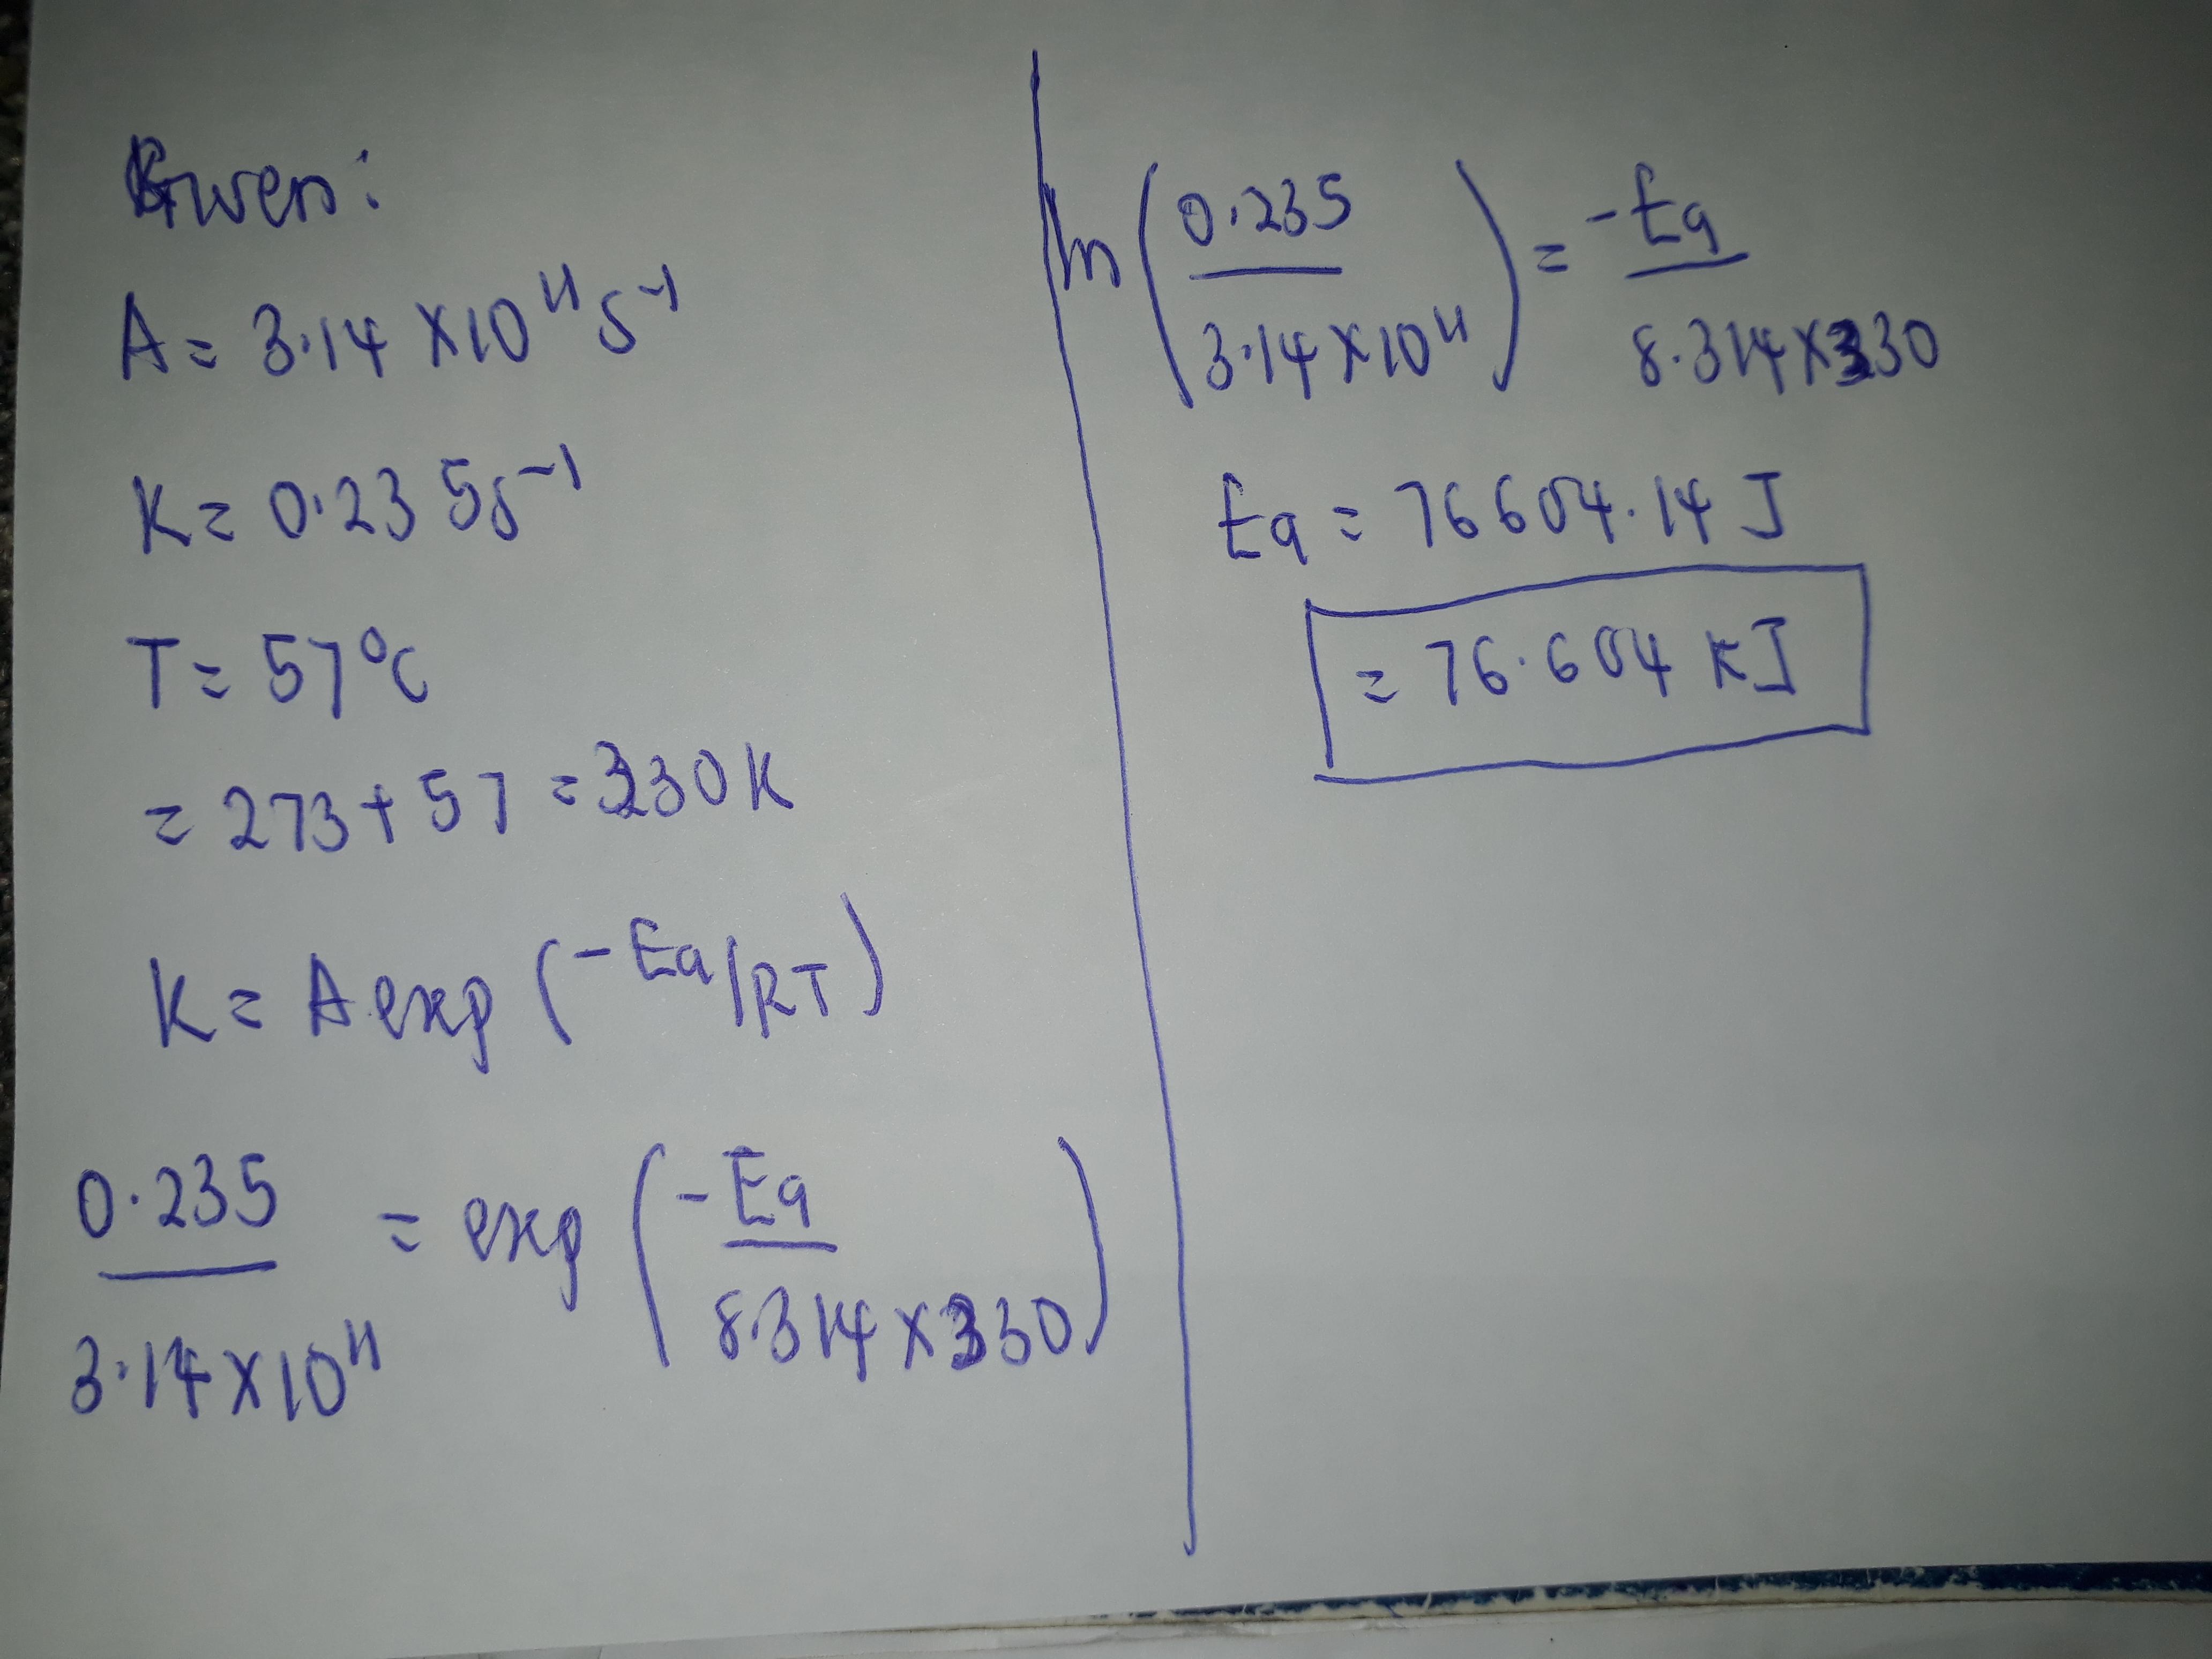 Given:
A = 3.14 X10¹¹ S⁻¹
K = 0.235s⁻¹
T = 57°C
= 273 + 57 = 330K
K = A exp (-Ea/RT)
0.235 / 3.14 X10¹¹ = exp (-Ea / 8.314 X 330)
ln (0.235 / 3.14 X 10¹¹) = -Ea / 8.314 X 330
Ea = 76604.14 J
= 76.604 KJ